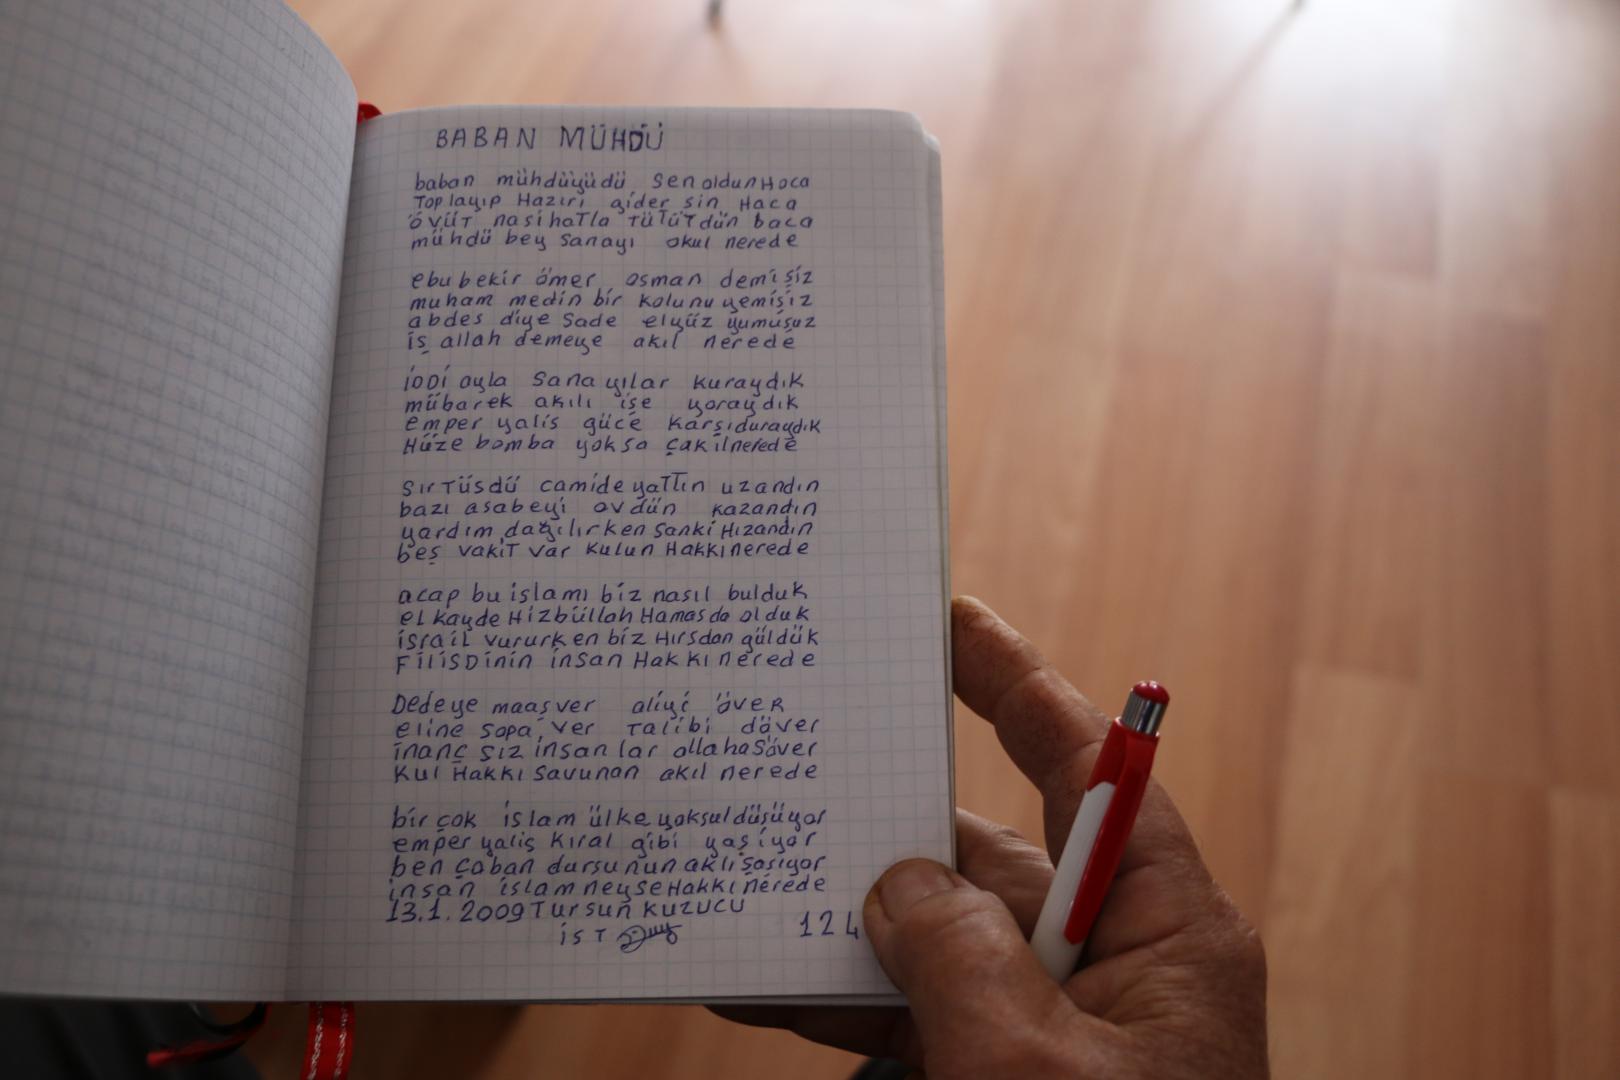 BABAN MÜHDÜ
baban mühdüyüdü sen oldun Hoca
Toplayıp Hazırı gider sin Haca
övüt nasihatla tütütdün baca
mühdü bey sanayı okul nerede
ebubekir ömer osman demişiz
muham medin bir kolunu yemişiz
abdes diye sade elyüz yumuşuz
iş allah demeye akıl nerede
ayla sanayılar kuraydık
mübarek akılı işe yoraydık
emper yalis güce karşıduraydık
Hüze bomba yoksa çakılnerede
sırtüsdü camide yattın uzandın
bazı asabeyi ovdün kazandın
yardım dağılırken sanki Hızandın
beş vakit var kulun Hakkı nerede
acap bu islamı biz nasıl bulduk
el kayde Hizbüllah Hamasda olduk
israil vururken biz Hırsdan güldük
Filisdinin insan Hakkı nerede
Dedeye maaş ver aliyi över
eline sopa ver talibi döver
inanç sız insanlar allaha söver
kul Hakkı savunan akıl nerede
bir çok islam ülke yoksul düşüyor
emper yaliş kıral gibi yaşıyor
ben çoban dursunun aklı şaşıyor
insan islam neyse Hakkı nerede
13.1.2009 Tursun kuzucu
ist
124